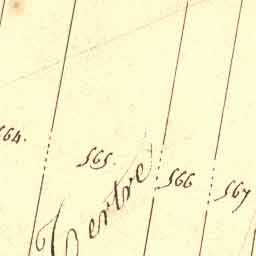 564.
565.
566
567
Tertre